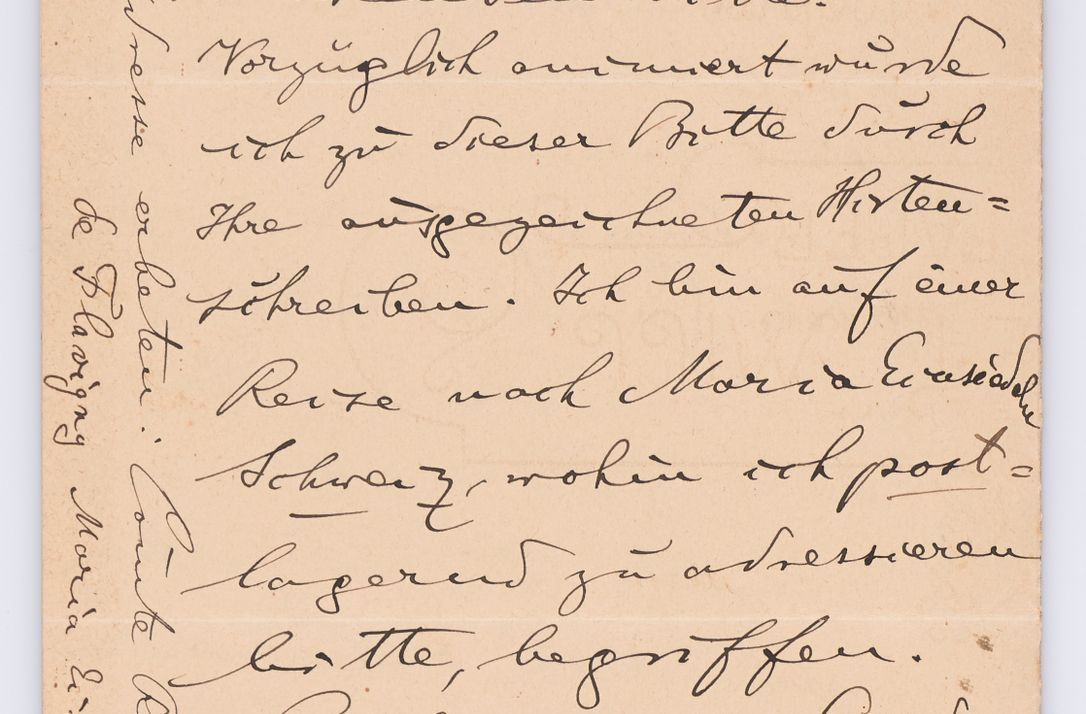 Vorzüglich animiert wurde
ich zu dieser Bitte durch
Ihre ausgezeichneten Hirten=
schreiben. Ich bin auf einer
Reise nach Maria Einsiedeln
Schweiz, wohin ich post=
lagernd zu adressieren
bitte, begriffen.
dresse erbeten: Comte
de Flavigny Maria Ei